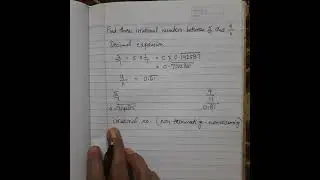 Find three irrational numbers between 5/7 and 9/11
Decimal expansion
5/7 = 5 × 1/7 = 5 × 0.142857
= 0.714285
9/11 = 0.81
5/7 9/11
0.81
irrational no. (non-terminating non-recurring